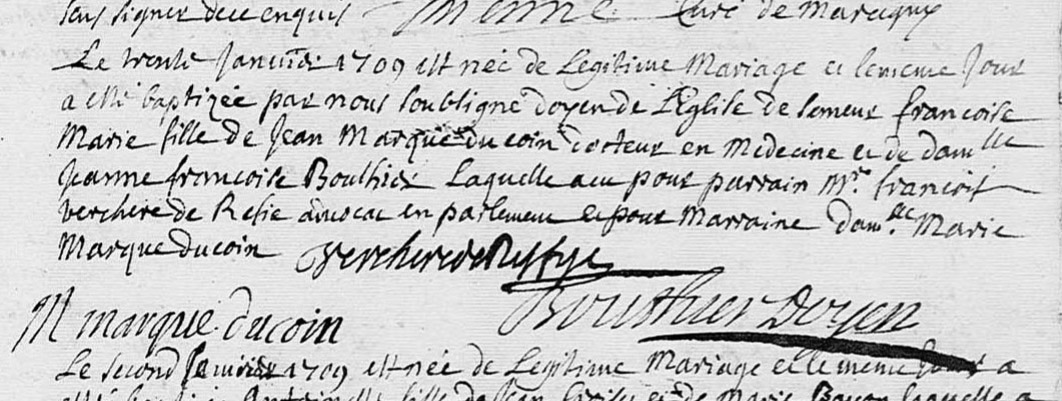 leus signer de ce enquis Curé de Marcigny
Le trente Janvier 1709 est née de Legitime Mariage et le meme Jour
a esté baptizée par nous soubsigné doyen de L'Eglise de Semeur francoise
Marie fille de Jean Marque du coin docteur en Medecine et de dam.lle
Jeanne francoise Bouthier Laquelle a eu pour parrain Mr. francois
verchere de Refie advocat en parlement et pour Marraine dam.lle Marie
Marque du coin verchere de Reffye
Bouthier Doyen
M marque. ducoin
Le second 1709 est née de Legitime Mariage et le meme Jour a
esté Antoinette fille de Jean et de Marie laquelle a